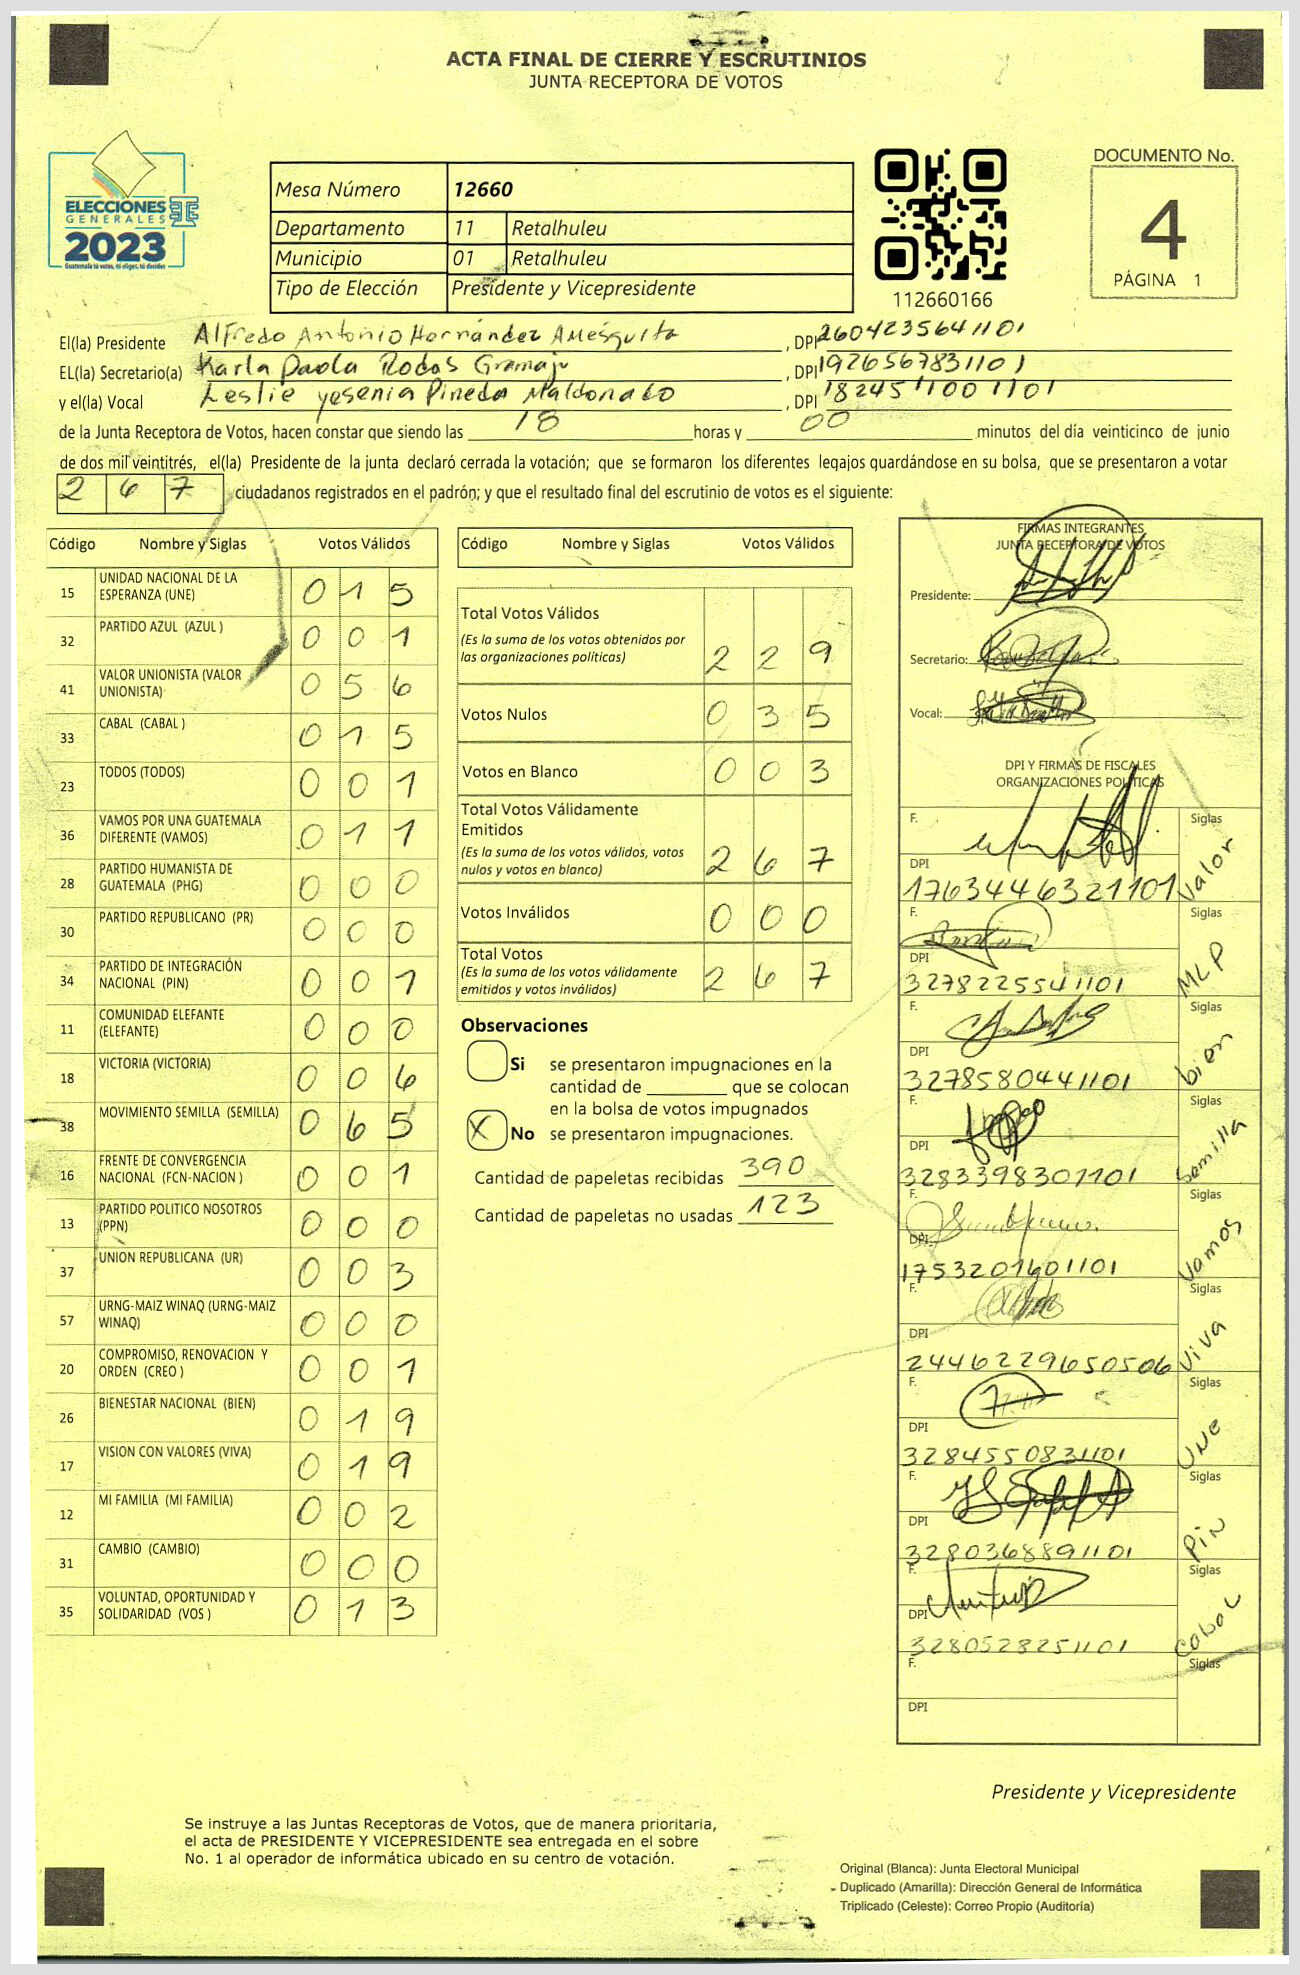 ACTA FINAL DE CIERRE Y ESCRUTINIOS
JUNTA RECEPTORA DE VOTOS
ELECCIONES
GENERALES
2023
Guatemala tú votas, tú eliges, tú decides
Mesa Número 12660
Departamento 11 Retalhuleu
Municipio 01 Retalhuleu
Tipo de Elección Presidente y Vicepresidente
112660166
DOCUMENTO No.
4
PÁGINA 1
El(la) Presidente Alfredo Antonio Hernández Amésquita, DPI 2604235641101
EL(la) Secretario(a) Karla Paola Rodas Gramajo, DPI 1926567831101
y el(la) Vocal Leslie yesenia Pineda Maldonado, DPI 1824511001101
de la Junta Receptora de Votos, hacen constar que siendo las 18 horas y 00 minutos del día veinticinco de junio
de dos mil veintitrés, el(la) Presidente de la junta declaró cerrada la votación; que se formaron los diferentes legajos guardándose en su bolsa, que se presentaron a votar
267 ciudadanos registrados en el padrón; y que el resultado final del escrutinio de votos es el siguiente:
Código Nombre y Siglas Votos Válidos
15 UNIDAD NACIONAL DE LA ESPERANZA (UNE) 015
32 PARTIDO AZUL (AZUL ) 001
41 VALOR UNIONISTA (VALOR UNIONISTA) 056
33 CABAL (CABAL ) 015
23 TODOS (TODOS) 001
36 VAMOS POR UNA GUATEMALA DIFERENTE (VAMOS) 011
28 PARTIDO HUMANISTA DE GUATEMALA (PHG) 000
30 PARTIDO REPUBLICANO (PR) 000
34 PARTIDO DE INTEGRACIÓN NACIONAL (PIN) 001
11 COMUNIDAD ELEFANTE (ELEFANTE) 000
18 VICTORIA (VICTORIA) 006
38 MOVIMIENTO SEMILLA (SEMILLA) 065
16 FRENTE DE CONVERGENCIA NACIONAL (FCN-NACION ) 001
13 PARTIDO POLITICO NOSOTROS (PPN) 000
37 UNION REPUBLICANA (UR) 003
57 URNG-MAIZ WINAQ (URNG-MAIZ WINAQ) 000
20 COMPROMISO, RENOVACION Y ORDEN (CREO ) 001
26 BIENESTAR NACIONAL (BIEN) 019
17 VISION CON VALORES (VIVA) 019
12 MI FAMILIA (MI FAMILIA) 002
31 CAMBIO (CAMBIO) 000
35 VOLUNTAD, OPORTUNIDAD Y SOLIDARIDAD (VOS ) 013
Código Nombre y Siglas Votos Válidos
Total Votos Válidos
(Es la suma de los votos obtenidos por
las organizaciones políticas) 229
Votos Nulos 035
Votos en Blanco 003
Total Votos Válidamente
Emitidos
(Es la suma de los votos válidos, votos
nulos y votos en blanco) 267
Votos Inválidos 000
Total Votos
(Es la suma de los votos válidamente
emitidos y votos inválidos) 267
Observaciones
Si se presentaron impugnaciones en la
cantidad de ________ que se colocan
en la bolsa de votos impugnados
X No se presentaron impugnaciones.
Cantidad de papeletas recibidas 390
Cantidad de papeletas no usadas 123
FIRMAS INTEGRANTES
JUNTA RECEPTORA DE VOTOS
Presidente:
Secretario:
Vocal:
DPI Y FIRMAS DE FISCALES
ORGANIZACIONES POLITICAS
F. Siglas
DPI 1763446321101 Valor
F. Siglas
DPI 3278225541101 MLP
F. Siglas
DPI 3278580441101 bien
F. Siglas
DPI 3283398301101 Semilla
F. Siglas
DPI 1753201401101 Vamos
F. Siglas
DPI 2446229650506 Viva
F. Siglas
DPI 3284550831101 UNE
F. Siglas
DPI 3280368891101 Pin
F. Siglas
DPI 3280528251101 Cabal
F. Siglas
DPI
Presidente y Vicepresidente
Se instruye a las Juntas Receptoras de Votos, que de manera prioritaria,
el acta de PRESIDENTE Y VICEPRESIDENTE sea entregada en el sobre
No. 1 al operador de informática ubicado en su centro de votación.
Original (Blanca): Junta Electoral Municipal
Duplicado (Amarilla): Dirección General de Informática
Triplicado (Celeste): Correo Propio (Auditoría)